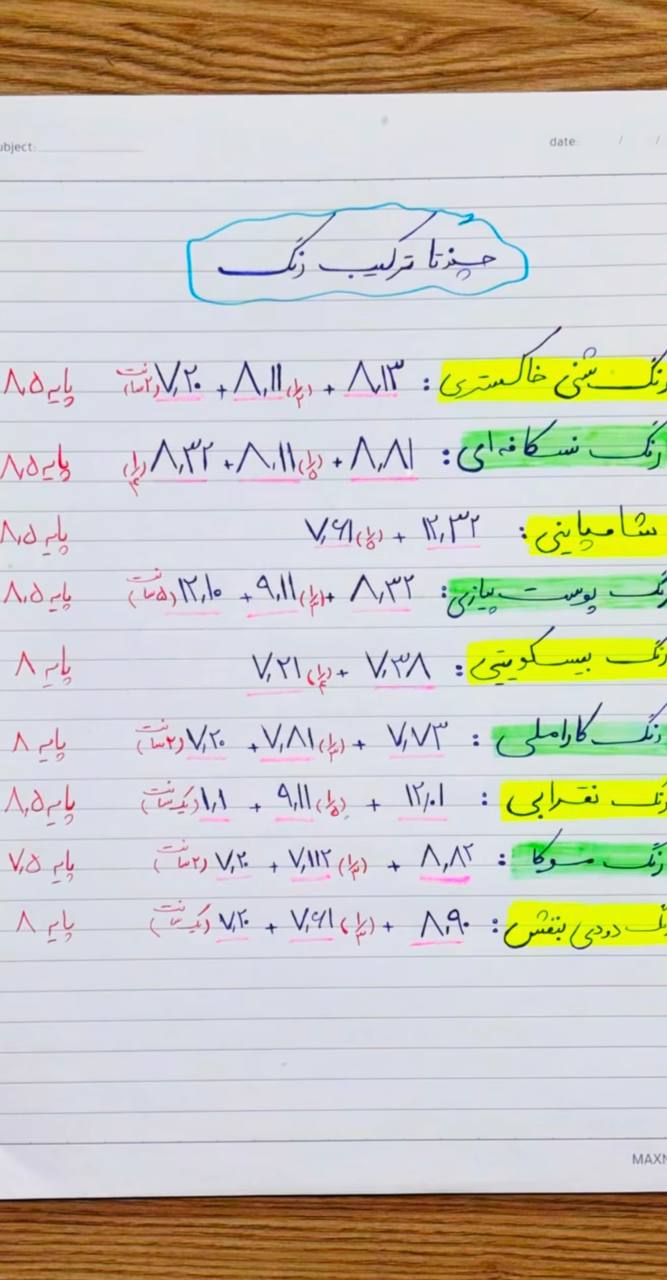 ubject:
date: / /
چندتا ترکیب رنگ
رنگ شنی خاکستری: ۸,۱۳ + ۸,۱۱(۱/۲) + ۷,۲۰(۲سانت) پایه ۸,۵
رنگ نسکافه‌ای: ۸,۸۱ + ۸,۱۱(۱/۵) + ۸,۳۲(۱/۴) پایه ۸,۵
شامپاینی: ۱۲,۳۲ + ۷,۶۱(۱/۵) پایه ۸,۵
رنگ پوست پیازی: ۸,۳۲ + ۹,۱۱(۱/۳) + ۱۲,۱۰(۵سانت) پایه ۸,۵
رنگ بیسکویتی: ۷,۳۸ + ۷,۲۱(۱/۴) پایه ۸
رنگ کاراملی: ۷,۷۳ + ۷,۸۱(۱/۳) + ۷,۲۰(۲سانت) پایه ۸
رنگ نقرابی: ۱۲,۰۱ + ۹,۱۱(۱/۵) + ۱,۱(یک سانت) پایه ۸,۵
رنگ موکا: ۸,۸۲ + ۷,۱۱۲(۱/۳) + ۷,۲۰(۲سانت) پایه ۷,۵
رنگ دودی بنفش: ۸,۹۰ + ۷,۶۱(۱/۳) + ۷,۲۰(یک سانت) پایه ۸
MAXN